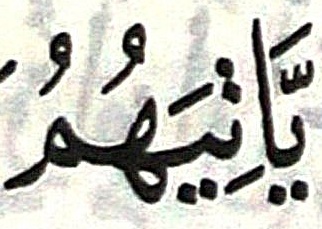 يَّاتِيَهُمُ